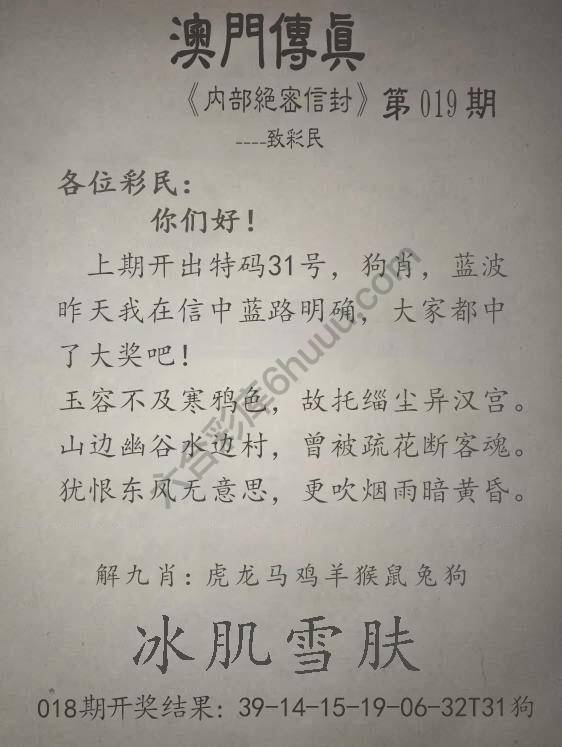 澳門傳眞
《内部絕密信封》第019期
----致彩民
各位彩民：
你们好！
上期开出特码31号，狗肖，蓝波
昨天我在信中蓝路明确，大家都中
了大奖吧！
玉容不及寒鸦色，故托缁尘异汉宫。
山边幽谷水边村，曾被疏花断客魂。
犹恨东风无意思，更吹烟雨暗黄昏。
六合彩库6huuu.com
解九肖：虎龙马鸡羊猴鼠兔狗
冰肌雪肤
018期开奖结果：39-14-15-19-06-32T31狗